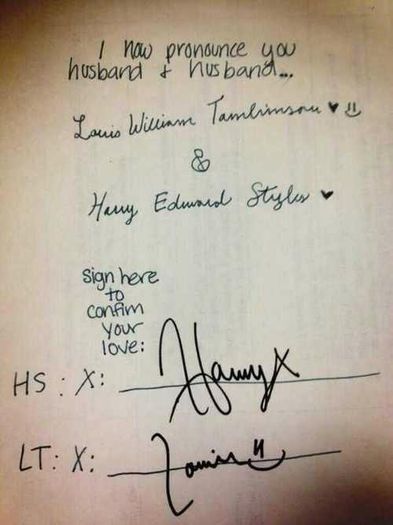 I now pronounce you
husband & husband...
Louis William Tomlinson ♥ :)
&
Harry Edward Styles ♥
sign here
to
confim
your
love:
HS: X: Harry x
LT: X: Louis :)